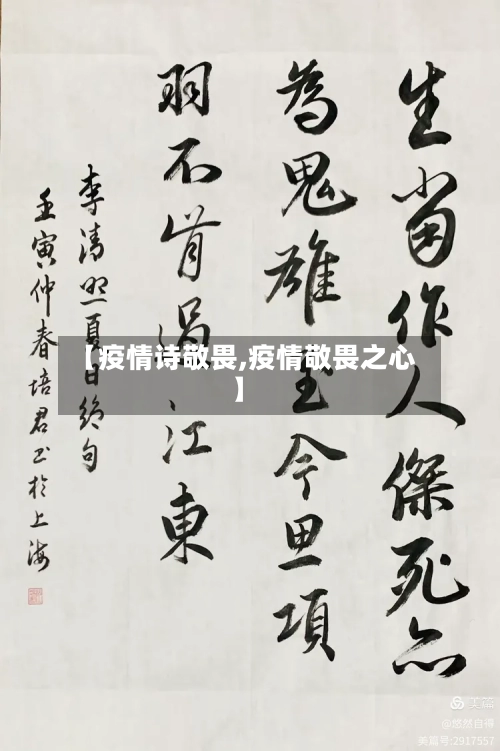 生當作人傑死亦
為鬼雄至今思項
羽不肯過江東
李清照夏日絕句
壬寅仲春培君书於上海
【疫情诗敬畏,疫情敬畏之心
】
美篇
@悠然自得
美篇号:2917557